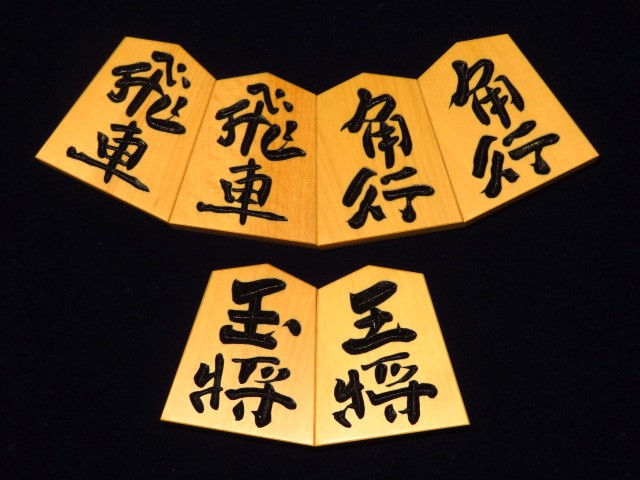 飛車
飛車
角行
角行
玉将
王将